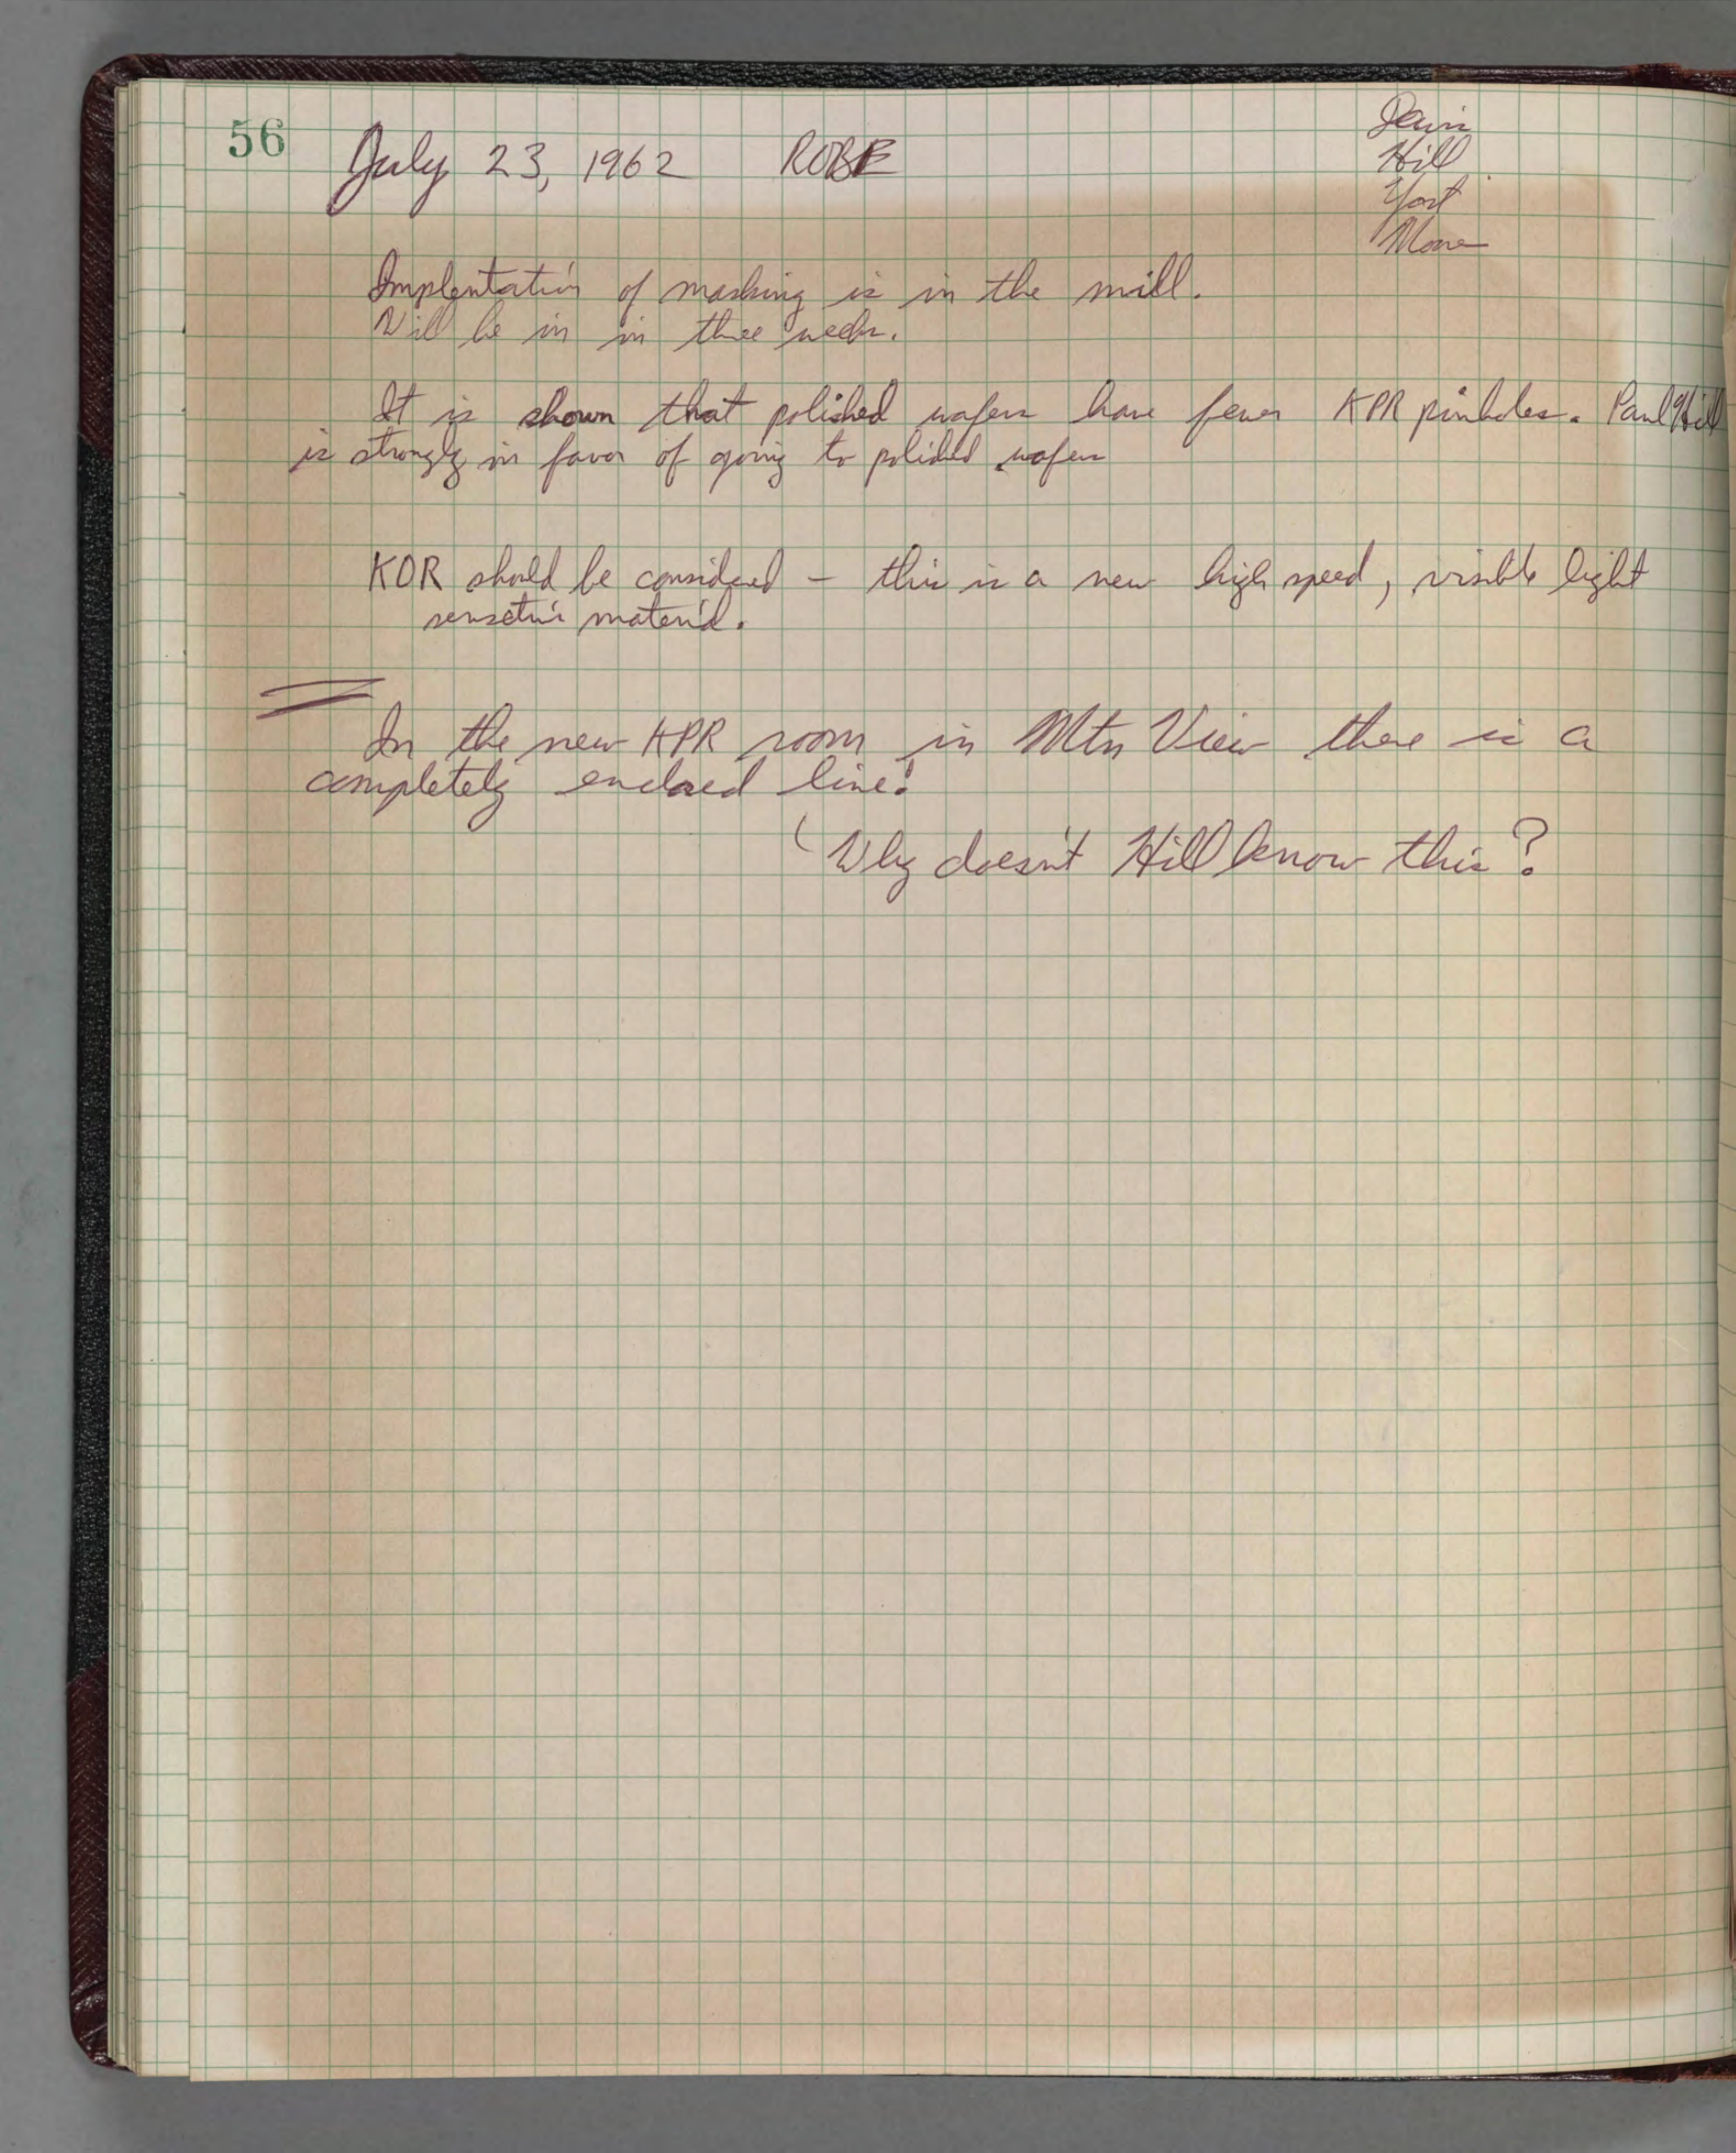 56
July 23, 1962 ROBE
Hill
Yost
Moore
Implentation of masking is in the mill.
Will be in in three weeks.
It is shown that polished wafers have fewer KPR pinholes. Paul Hill
is strongly in favor of going to polished wafers
KOR should be considered – this is a new high speed, visible light
sensetive material.
In the new KPR room in Mtn View there is a
completely enclosed line!
Why doesn't Hill know this?